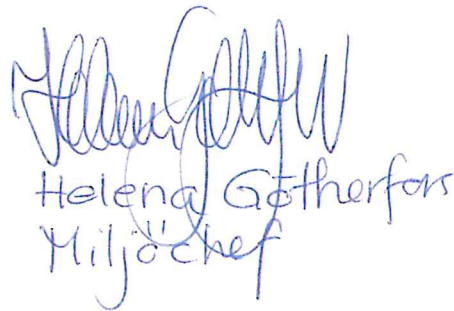 Helena Götherfors
Miljöchef